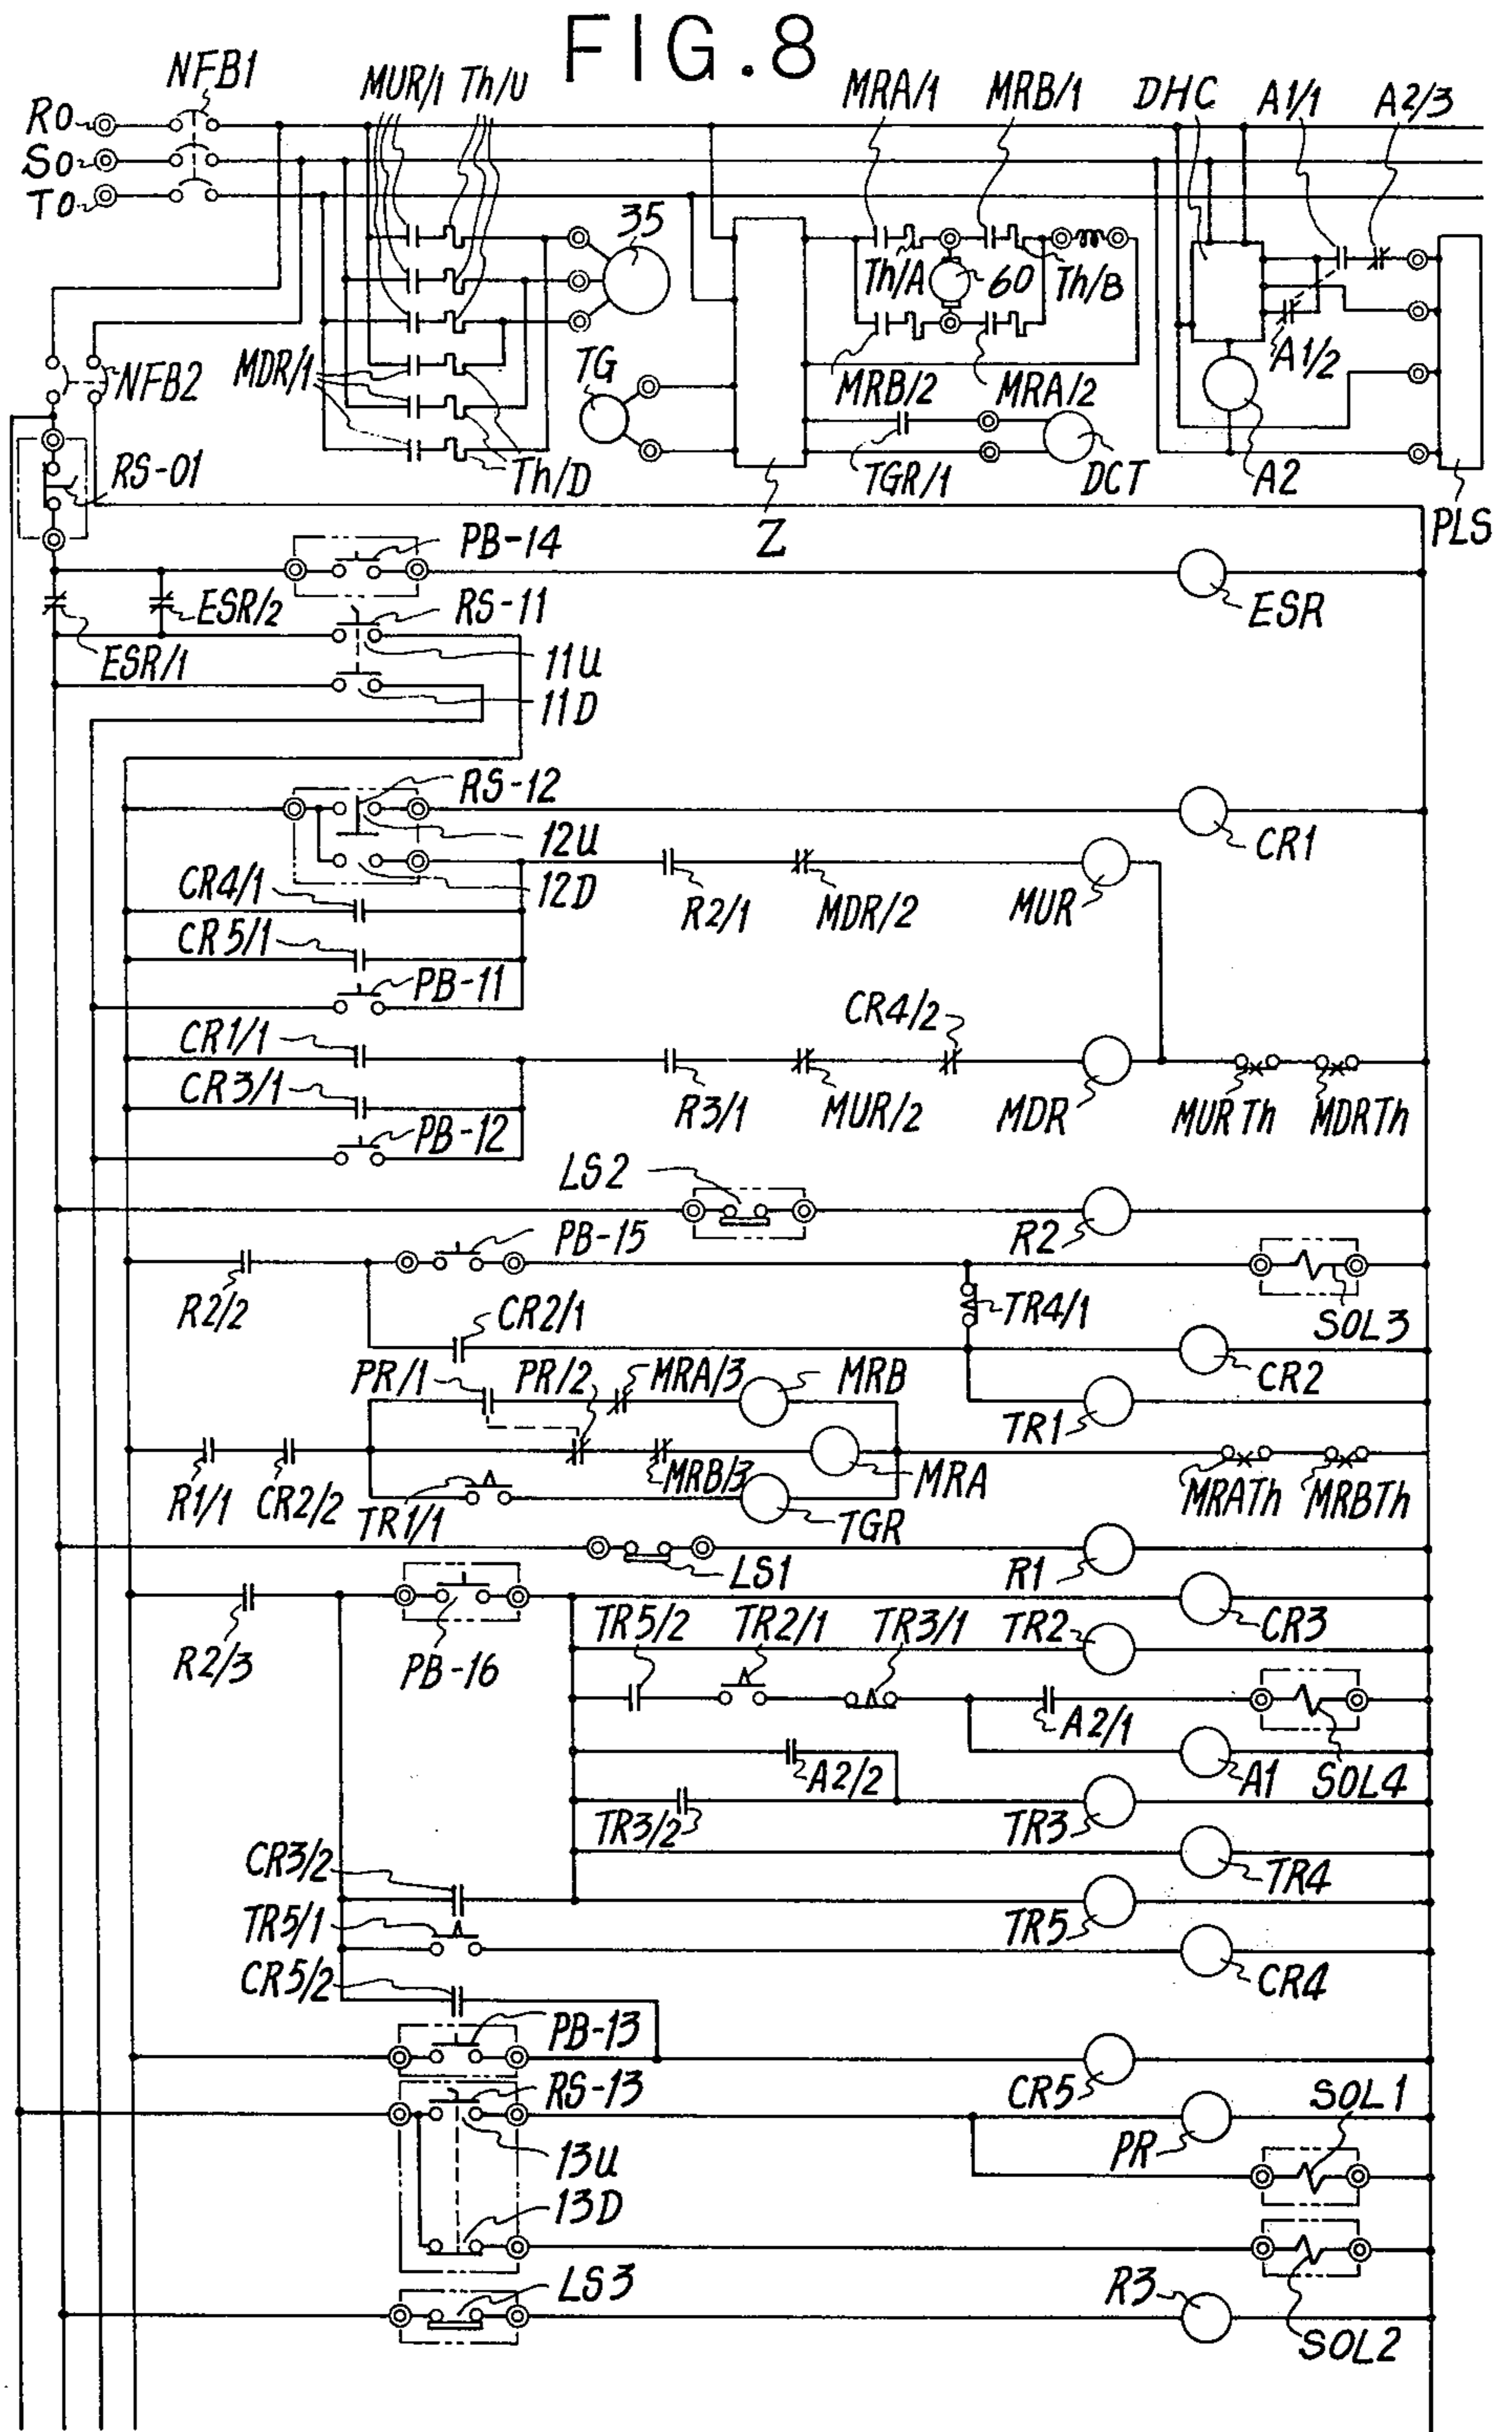 FIG.8
NFB1
MUR/1 Th/U
MRA/1 MRB/1 DHC A1/1 A2/3
RO
SO
TO
35
Th/A 60 Th/B
A1/2
NFB2
MDR/1
TG
MRB/2 MRA/2
RS-01
Th/D
TGR/1 DCT A2
Z
PLS
PB-14
ESR
ESR/2
RS-11
ESR/1
11U
11D
RS-12
CR1
12U
12D
CR4/1
R2/1 MDR/2 MUR
CR5/1
PB-11
CR4/2
CR1/1
CR3/1
R3/1 MUR/2 MDR MURTh MDRTh
PB-12
LS2
R2
PB-15
R2/2
TR4/1
SOL3
CR2/1
CR2
PR/1 PR/2 MRA/3 MRB
TR1
R1/1 CR2/2 TR1/1 MRB/3 MRA MRATh MRBTh
TGR
LS1 R1
CR3
TR5/2 TR2/1 TR3/1 TR2
R2/3
PB-16
A2/1
A2/2
A1 SOL4
TR3/2 TR3
CR3/2
TR4
TR5/1
TR5
CR5/2
CR4
PB-13
CR5
RS-13
SOL1
13U
PR
13D
LS3
R3
SOL2